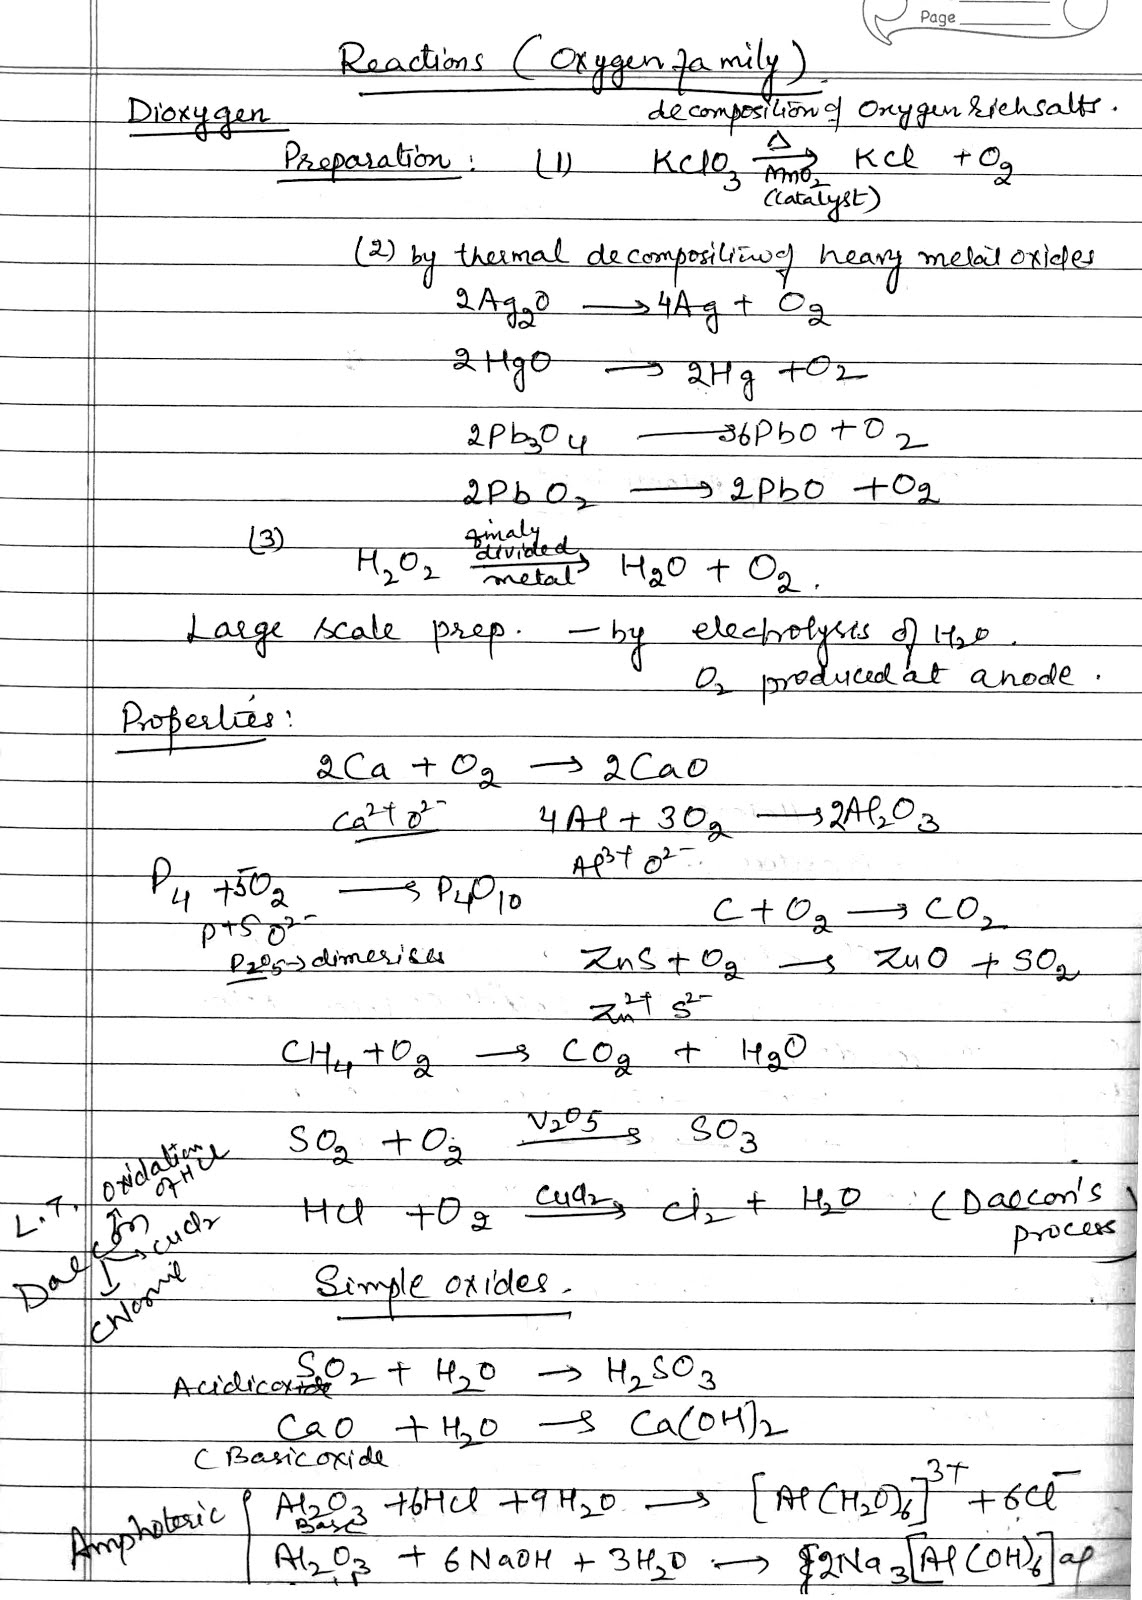 Page
Reactions (Oxygen family)
Dioxygen
decomposition of oxygen rich salts.
Preparation : (1) KClO3 →(Δ, MnO2 (catalyst)) KCl + O2
(2) by thermal decomposition of heavy metal oxides
2Ag2O → 4Ag + O2
2HgO → 2Hg + O2
2Pb3O4 → 6PbO + O2
2PbO2 → 2PbO + O2
(3) H2O2 →(finaly divided metal) H2O + O2.
Large scale prep. - by electrolysis of H2O.
O2 produced at anode.
Properties:
2Ca + O2 → 2CaO
Ca²⁺ O²⁻
4Al + 3O2 → 2Al2O3
Al³⁺ O²⁻
P4 + 5O2 → P4O10
P+5 O²⁻
C + O2 → CO2
P2O5 → dimerises
ZnS + O2 → ZnO + SO2
Zn²⁺ S²⁻
CH4 + O2 → CO2 + H2O
SO2 + O2 →(V2O5) SO3
HCl + O2 →(CuCl2) Cl2 + H2O (Daecon's process)
L.T. Oxidation of HCl
Daecon → CuCl2
Simple oxides.
SO2 + H2O → H2SO3
Acidic oxide
CaO + H2O → Ca(OH)2
(Basic oxide
Amphoteric
Al2O3 + 6HCl + 9H2O → [Al(H2O)6]³⁺ + 6Cl⁻
Base
Al2O3 + 6NaOH + 3H2O → 2Na3[Al(OH)6] aq